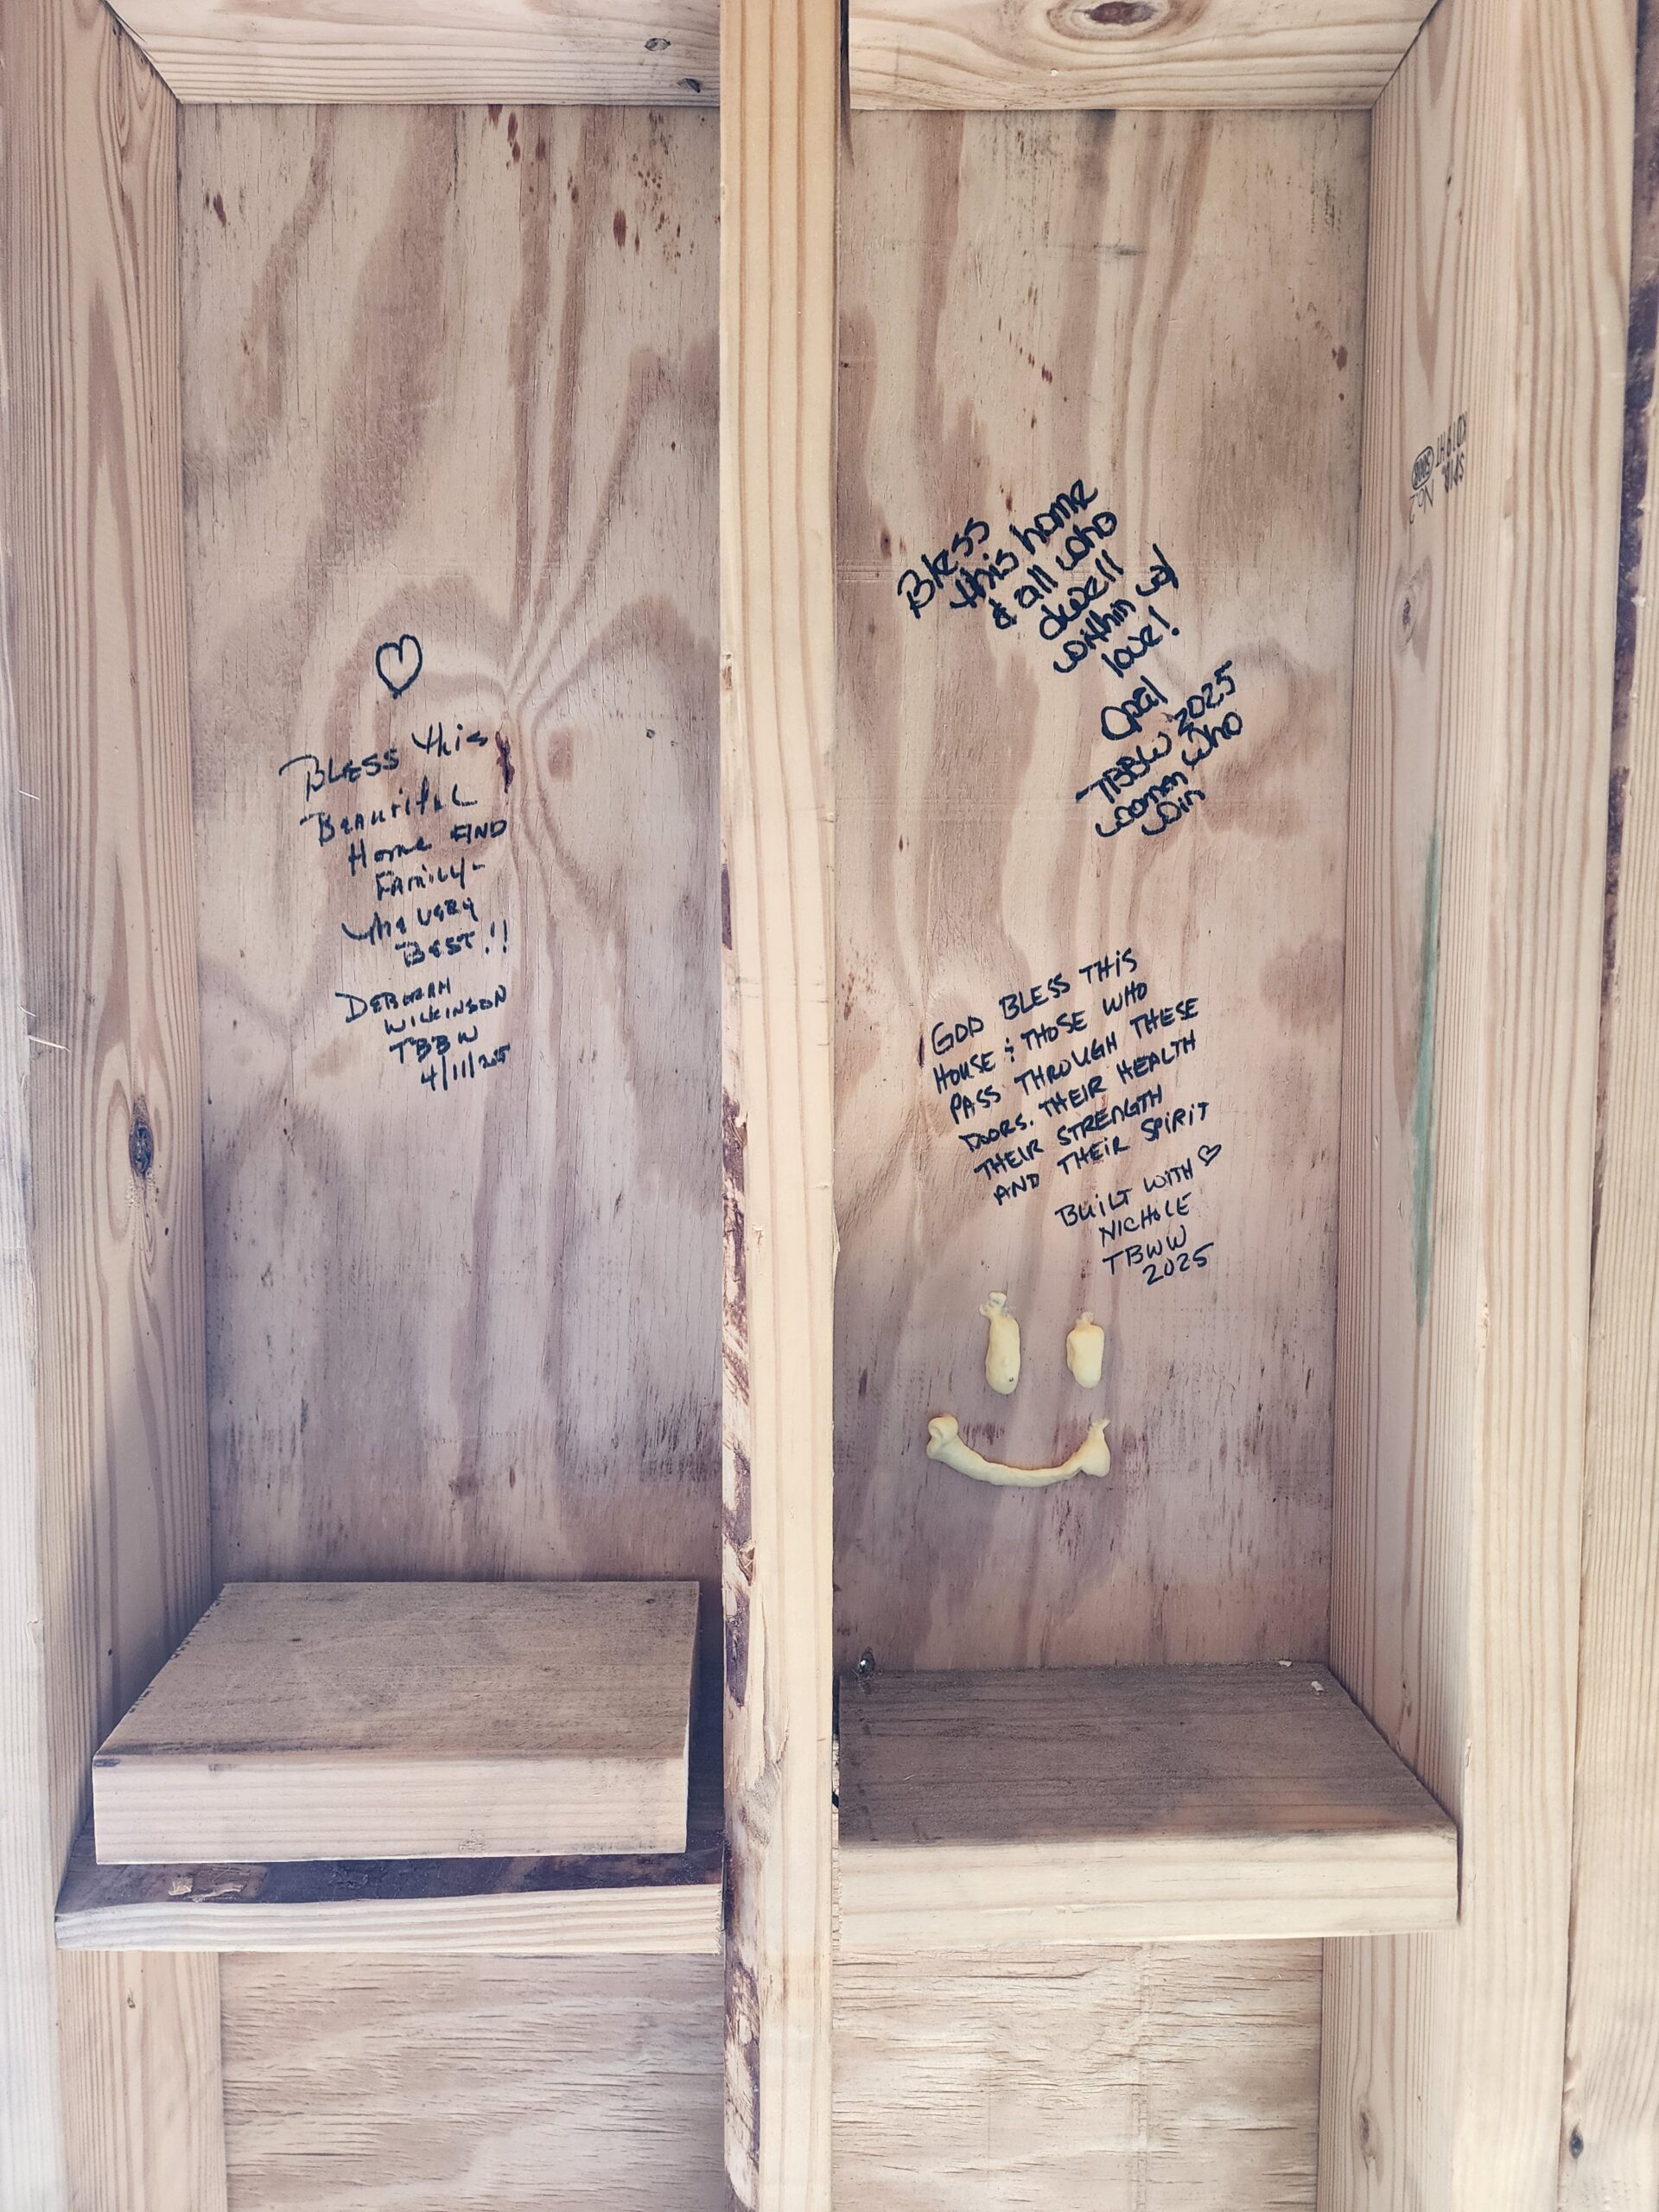 Bless this
Beautiful
Home AND
Family-
the very
Best!!
Deborah
Wilkinson
TBBW
4/11/2025
Bless
this home
& all who
dwell
within w/
love!
Opal
TBBW 2025
women who
win
GOD BLESS THIS
HOUSE & THOSE WHO
PASS THROUGH THESE
DOORS. THEIR HEALTH
THEIR STRENGTH
AND THEIR SPIRIT
BUILT WITH ♡
NICHOLE
TBWW
2025
KD19HT
No2